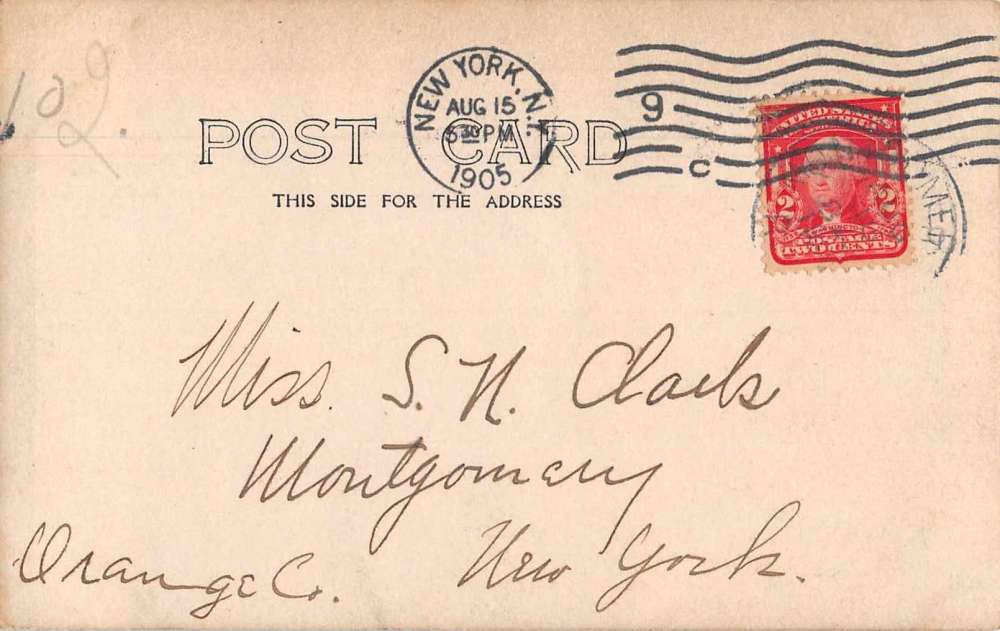 102.
NEW YORK, N.Y.
AUG 15
6 30 PM
1905
9
C
POST CARD
THIS SIDE FOR THE ADDRESS
UNITED STATES
2 2
POSTAGE
TWO CENTS
Miss. S. N. Clark
Montgomery
Orange Co. New York.